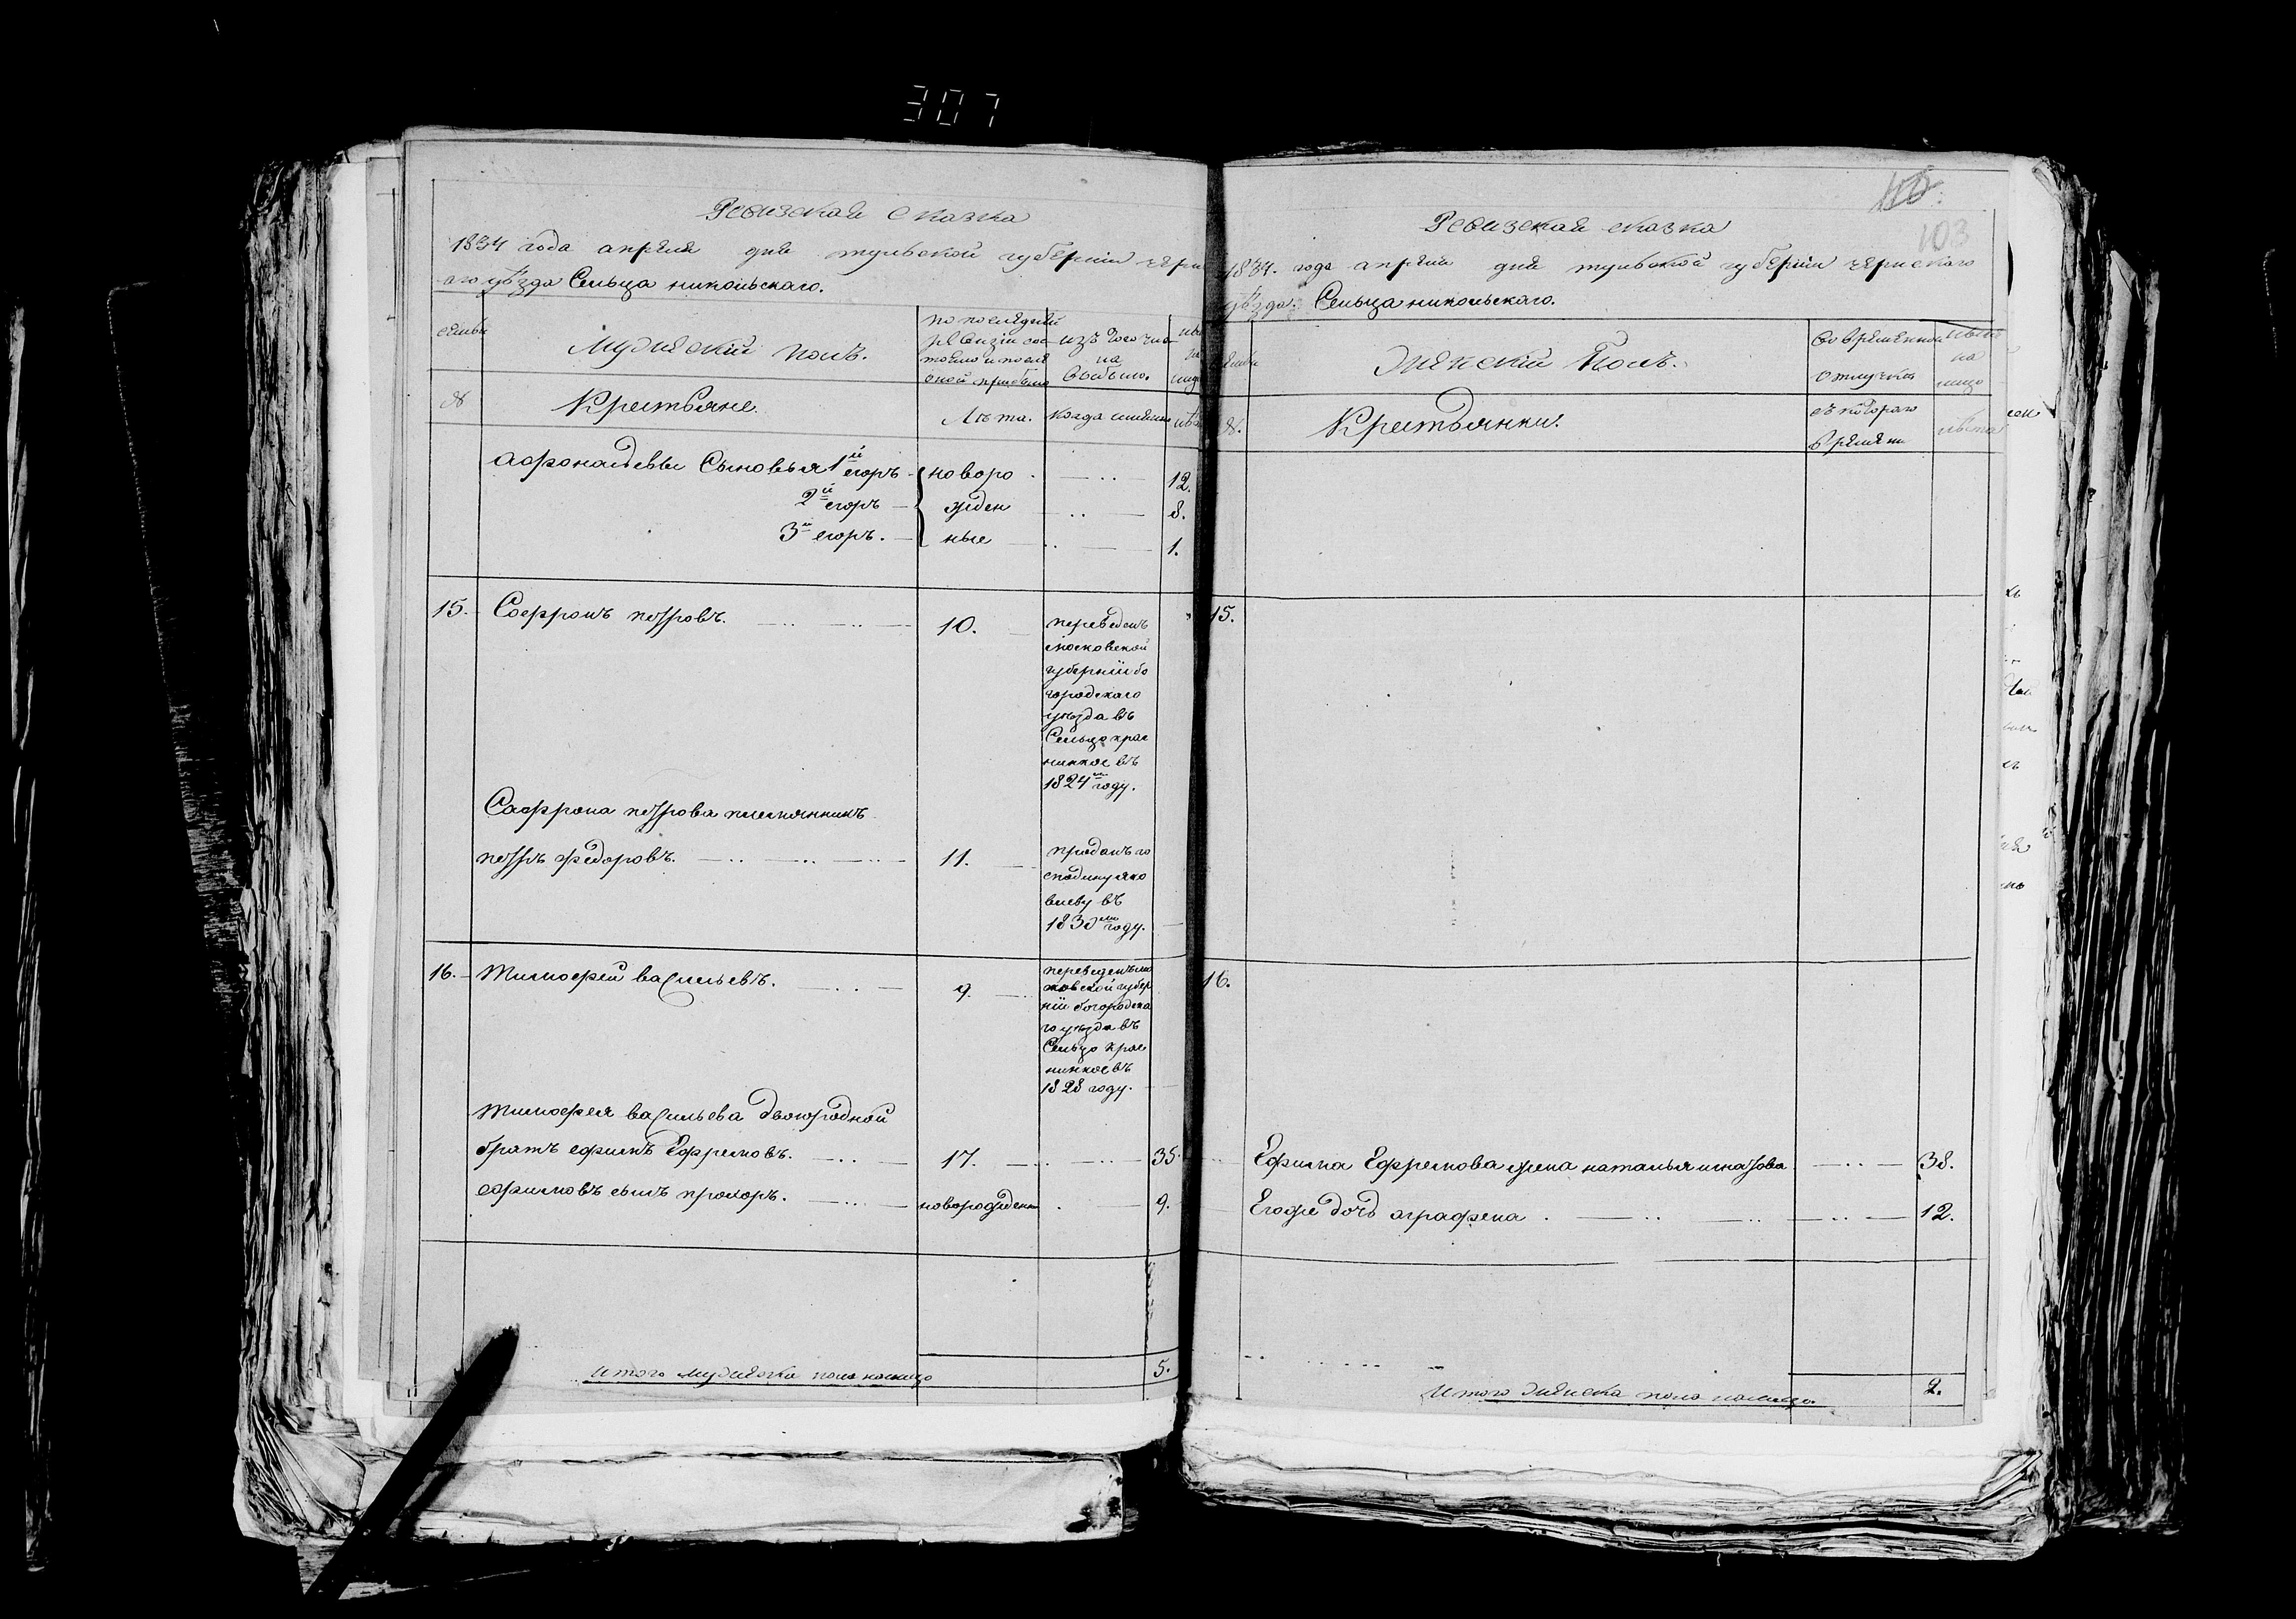 307
Ревизская сказка
1834 года апреля дня тульской губернии черн
аго уѣзда Сельца никольскаго.
семьи
Мужескій полъ.
по последней
ревизіи сос
тояло и после
оной прибыло
изъ того числа
на
выбыло.
№
Крестьяне.
Лѣта.
когда имянно
Афонасьевы Сыновья 1й егоръ
2й егоръ
3й егоръ.
новоро
жден
ные
12.
8.
1.
15.
Софронъ петровъ.
10.
переведенъ
московской
губерніи бо
городскаго
уѣзда въ
Сельцо крас
1824м году.
Софрона петрова племянникъ
петръ федоровъ.
11.
проданъ го
сподину яко
влеву въ
году.
16.
тимофей васильевъ.
9.
переведенъ мо
сковской губер
ніи богородска
го уѣзда въ
Сельцо крас
1828 году.
тимофея васильева двоюродной
братъ ефимъ Ефремовъ.
17.
35.
ефимовъ сынъ прохоръ.
новорожденн
9.
итого мужеска пола налицо
5.
103
Ревизская сказка
1834. года апреля дня тульской губерніи чернскаго
уѣзда: Сельца никольскаго.
Женскій Полъ.
Во временной
отлучке
на
лицо
№.
Крестьянки.
съ котораго
времяни
лѣта
15.
16.
Ефима Ефремова жена наталья игнатова
38.
Егоже дочь аграфена
12.
Итого женска пола налицо.
2.